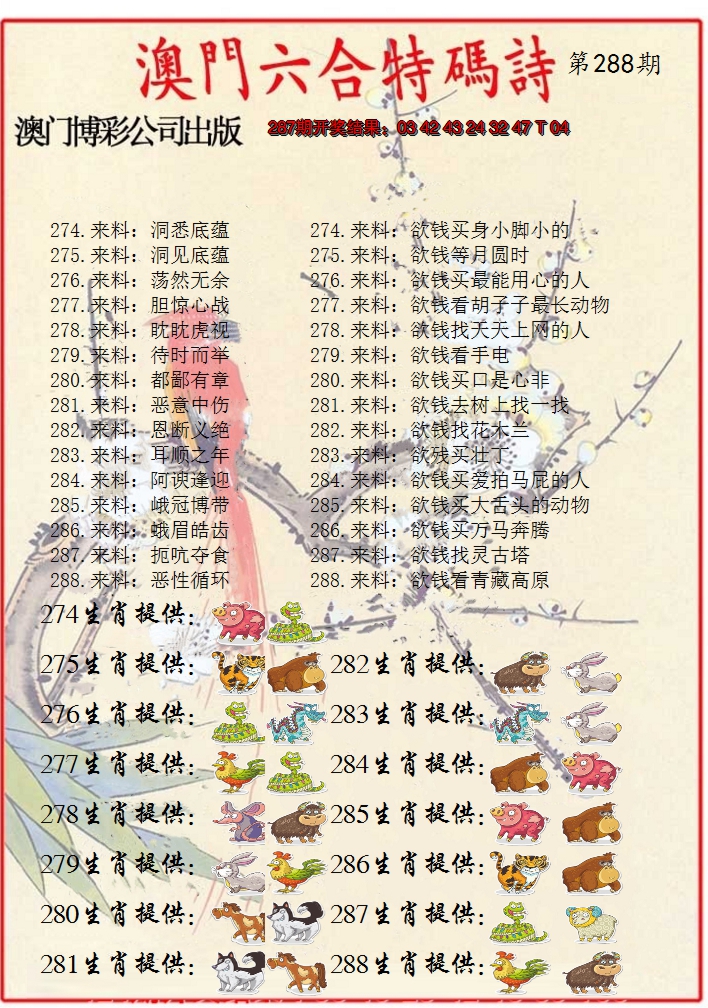 澳門六合特碼詩 第288期
澳门博彩公司出版 287期开奖结果：03 42 43 24 32 47 T 04
274.来料：洞悉底蕴 274.来料：欲钱买身小脚小的
275.来料：洞见底蕴 275.来料：欲钱等月圆时
276.来料：荡然无余 276.来料：欲钱买最能用心的人
277.来料：胆惊心战 277.来料：欲钱看胡子子最长动物
278.来料：眈眈虎视 278.来料：欲钱找天天上网的人
279.来料：待时而举 279.来料：欲钱看手电
280.来料：都鄙有章 280.来料：欲钱买口是心非
281.来料：恶意中伤 281.来料：欲钱去树上找一找
282.来料：恩断义绝 282.来料：欲钱找花木兰
283.来料：耳顺之年 283.来料：欲残买壮丁
284.来料：阿谀逢迎 284.来料：欲钱买爱拍马屁的人
285.来料：峨冠博带 285.来料：欲钱买大舌头的动物
286.来料：蛾眉皓齿 286.来料：欲钱买万马奔腾
287.来料：扼吭夺食 287.来料：欲钱找灵古塔
288.来料：恶性循环 288.来料：欲钱看青藏高原
274生肖提供：
275生肖提供： 282生肖提供：
276生肖提供： 283生肖提供：
277生肖提供： 284生肖提供：
278生肖提供： 285生肖提供：
279生肖提供： 286生肖提供：
280生肖提供： 287生肖提供：
281生肖提供： 288生肖提供：